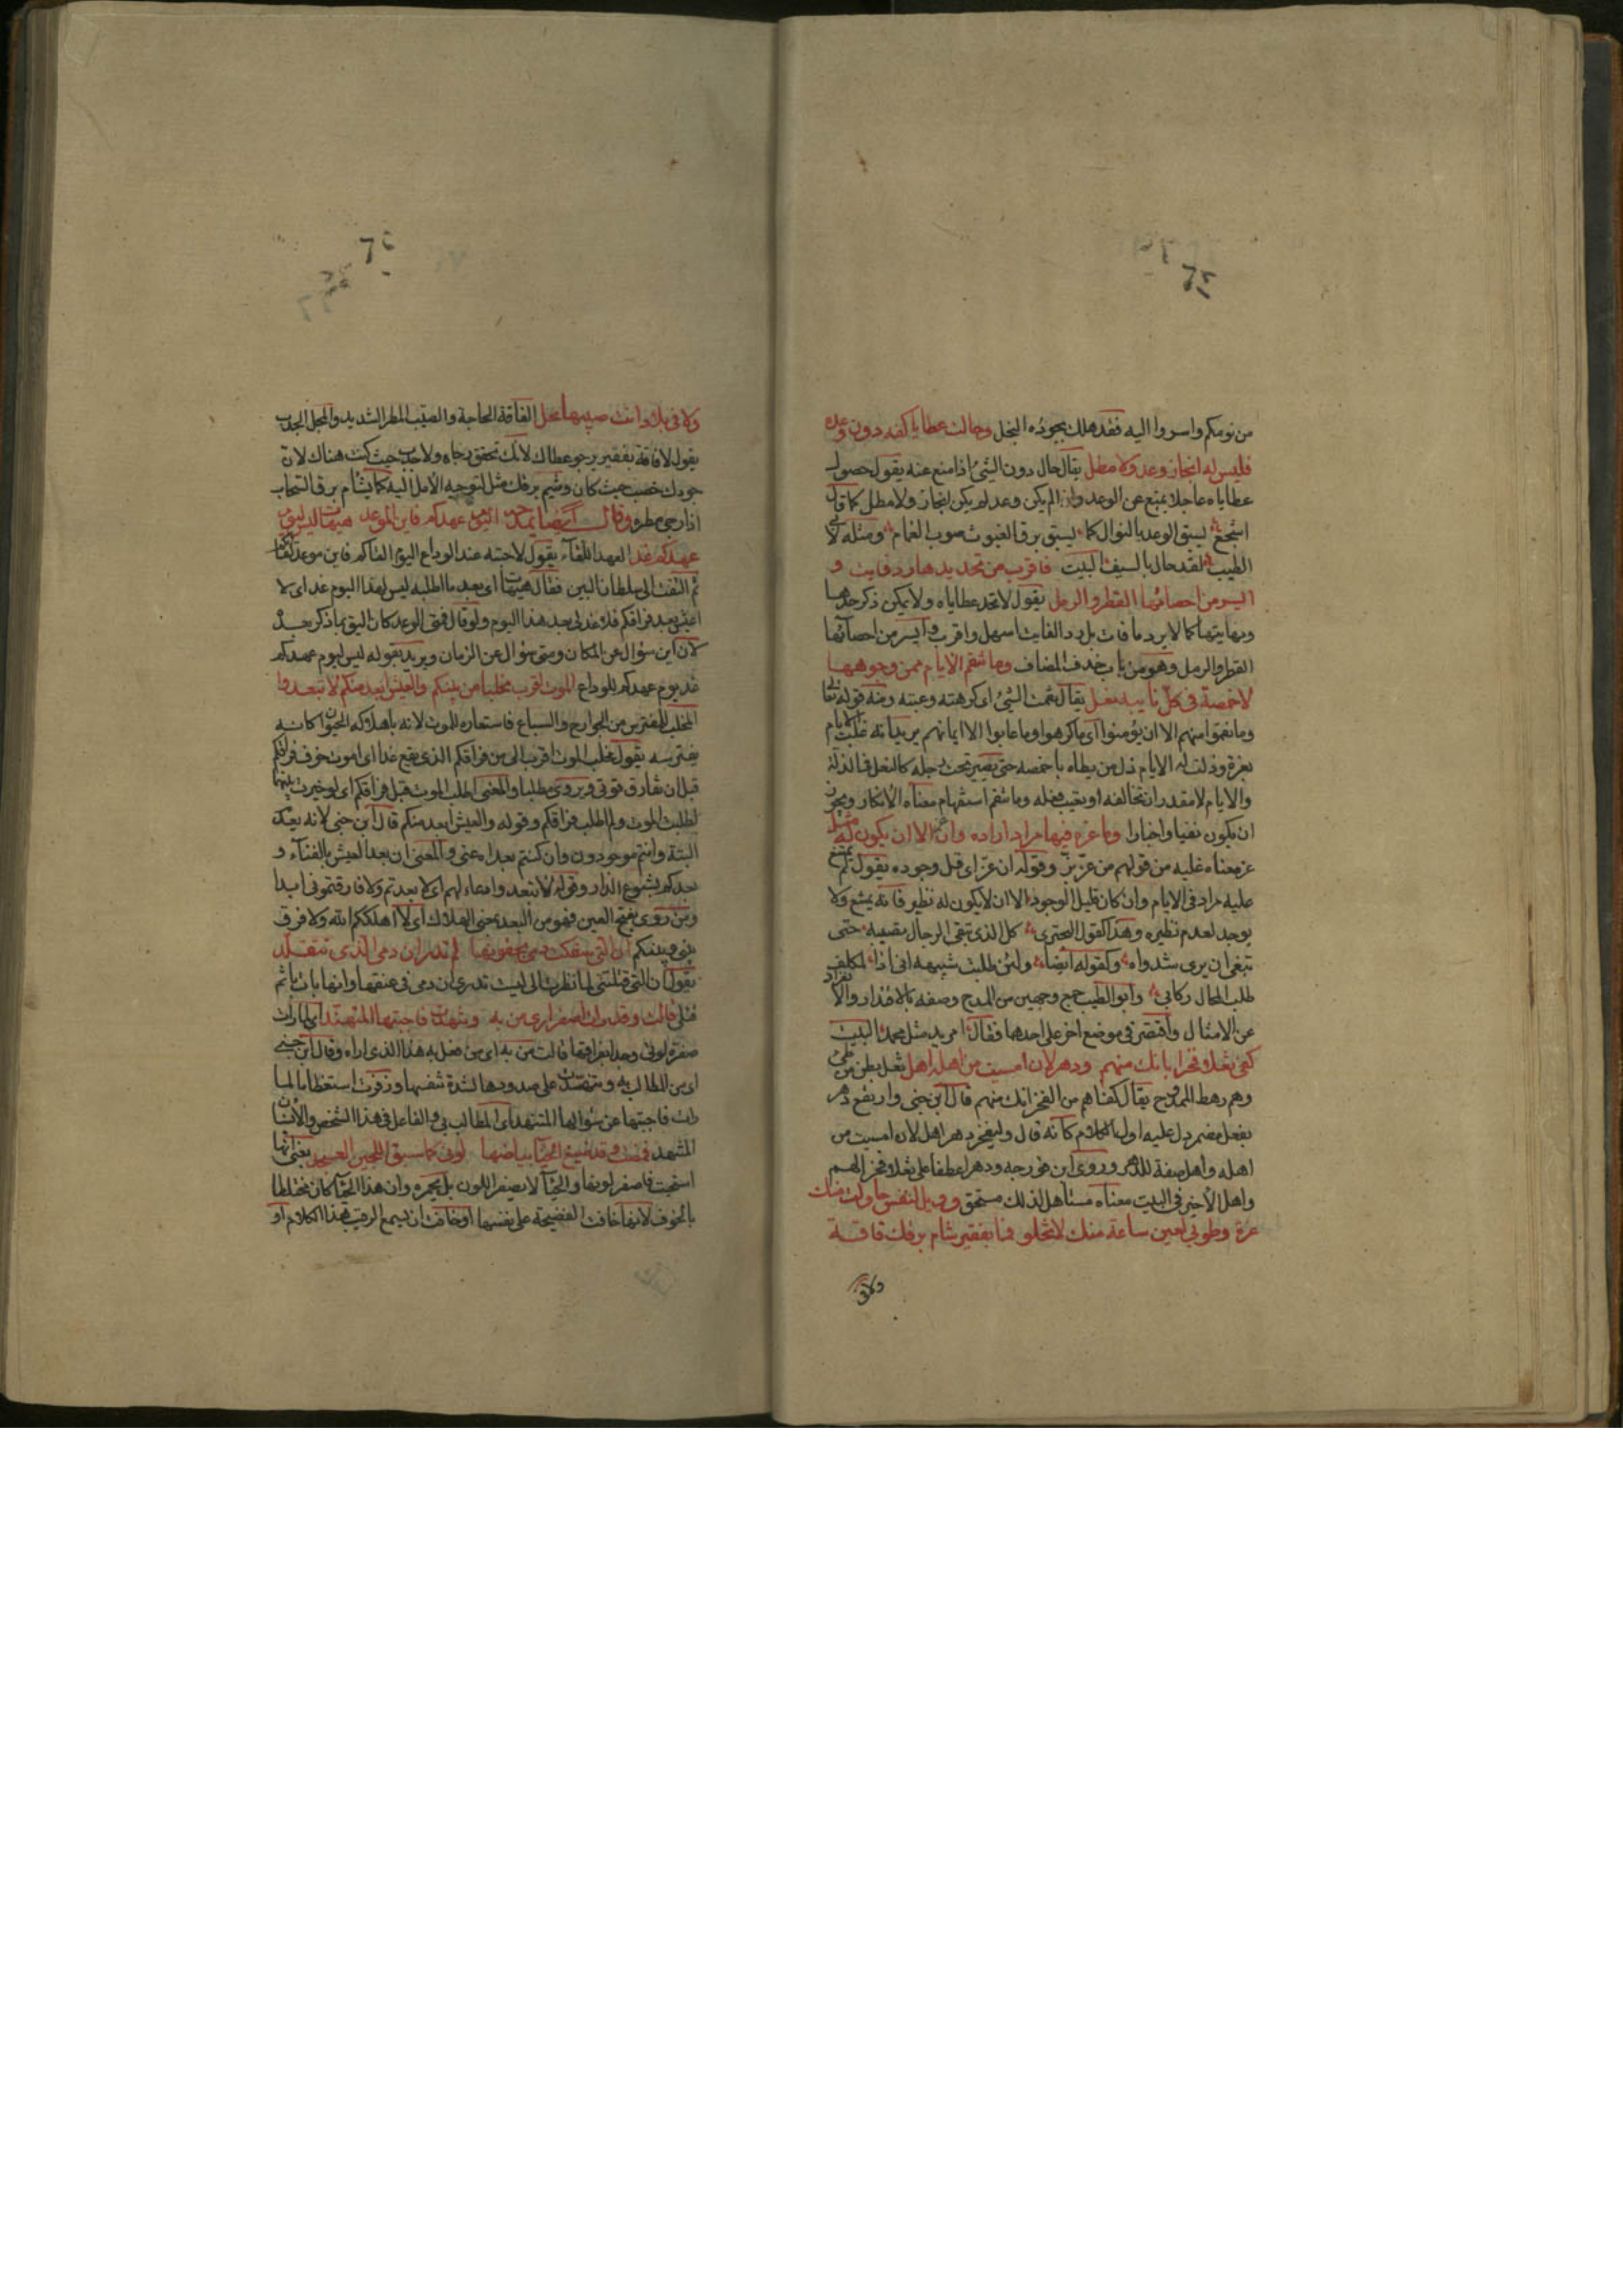 من نومكم واسروا اليه فقد هلك بجوده البخل وحالت عطايا كفه دون وعده
فليس له انجاز وعد ولا مطل يقال حال دون الشئ اذا منع عنه يقول حصول
عطاياه عاجلا يمنع عن الوعد واذا لم يكن وعد لم يكن انجاز ولا مطل كما قال
اشجع يسبق الوعد بالنوال كما يسبق برق الغيوث صوب الغمام ومثله لابى
الطيب لقد حال بالسيف البيت فاقرب من تحديدها رد فايت و
ايسر من احصائها القطر والرمل يقول لا تحد عطاياه ولا يمكن ذكر حدها
ونهايتها كما لا يرد ما فات بل رد الفايت اسهل واقرب وايسر من احصائها
القطر والرمل وهو من باب حذف المضاف وما تنقم الايام ممن وجوهها
لاخمصه فى كل نايبه نعل يقال نقمت الشئ اى كرهته وعبته ومنه قوله تعالى
وما نقموا منهم الا ان يؤمنوا اى ما كرهوا وما عابوا الا ايمانهم يريد انه غلبت الايام
بعزه وذلت له الايام ذل من يطاه باخمصه حتى يصير تحت رجله كالنعل فى الذلة
والايام لا تقدر ان تخالفه او تعيب فعله وما تنقم استفهام معناه الانكار ويجوز
ان يكون نفيا واخبارا وما عزه فيها مراد اراده وان عز الا ان يكون له مثل
عزه معناه غلبه من قولهم من عز بز وقوله ان عز اى قل وجوده يقول لم يمتنع
عليه مراد فى الايام وان كان قليل الوجود الا ان لا يكون له نظير فانه يمتنع ولا
يوجد لعدم نظيره وهذا كقول البحترى كل الذى تبغى الرجال تصيبه حتى
تبغى ان يرى شرواه وكقوله ايضا ولئن طلبت شبيهه انى اذا لمكلف
طلب المحال ركابى وابو الطيب جمع وجهين من المدح وصفه بالاقتدار والانفراد
عن الامثال واقتصر فى موضع اخر على احدهما فقال امريد مثل محمد البيت
كفى ثعلا فخرا بانك منهم ودهر لان امسيت من اهله اهل ثعل بطن من طئ
وهم رهط الممدوح يقال كفاهم من الفخر انك منهم قال ابن جنى وارتفع دهر
بفعل مضمر دل عليه اول الكلام كانه قال وليفخر دهر اهل لان امسيت من
اهله واهل صفة للدهر وروى ابن فورجه ودهرا عطفا على ثعلا وفخر لهم
واهل الاخير فى البيت معناه مستاهل لذلك مستحق وويل لنفس حاولت منك
غرة وطوبى لعين ساعة منك لا تخلو فما بفقير شام برقك فاقة
ولا فى
ولا فى بلاد انت صيبها محل الفاقة الحاجة والصيب المطر الشديد والمحل الجدب
يقول لا فاقة بفقير يرجو عطاك لانك تحقق رجاه ولا جدب حيث كنت هناك لان
جودك خصب حيث كان وشيم برقك مثل لتوجيه الامل اليه كما يشام برق السحاب
اذا رجى مطره وقال ايضا يمدح اليوم عهدكم فاين الموعد هيهات ليس ليوم
عهدكم غد العهد اللقاء يقول لاحبته عند الوداع اليوم القاكم فاين موعد لقائكم
ثم التفت الى سلطان البين فقال هيهات اى بعد ما اطلبه ليس لهذا اليوم غد اى لا
اعيش بعد فراقكم فلا غد لى بعد هذا اليوم ولو قال فمتى الوعد كان اليق بما ذكر بعده
لان اين سؤال عن المكان ومتى سؤال عن الزمان ويريد بقوله ليس ليوم عهدكم
غد يوم عهدكم للوداع الموت اقرب مخلبا من بينكم والعيش ابعد منكم لا تبعدوا
المخلب للمفترس من الجوارح والسباع فاستعاره للموت لانه باهلاكه الحيوان كانه
يفترسه يقول مخلب الموت اقرب الى من فراقكم الذى يقع غدا اى اموت خوف فراقكم
قبل ان تفارقونى ويروى مطلبا والمعنى اطلب الموت قبل فراقكم اى لو خيرت بينهما
لطلبت الموت ولم اطلب فراقكم وقوله والعيش ابعد منكم قال ابن جنى لانه يعدم
البتة وانتم موجودون وان كنتم بعداء عنى والمعنى ان بعد العيش بالفناء و
بعدكم بشسوع الدار وقوله لا تبعدوا دعاء لهم اى لا بعدتم ولا فارقتمونى ابدا
ومن روى بفتح العين فهو من البعد بمعنى الهلاك اى لا اهلككم الله ولا فرق
بينى وبينكم ان التى سفكت دمى بجفونها لم تدر ان دمى الذى تتقلد
يقول ان التى قتلتنى لما نظرت الى ليست تدرى ان دمى فى عنقها وانها باءت باثم
قتلى قالت وقد رات اصفرارى من به وتنهدت فاجبتها المتنهد اى لما رات
صفرة لونى وجدا بفراقها قالت من به اى من فعل به هذا الذى اراه وقال ابن جنى
اى من المطالب به وتنهدت على صدودها لشدة تنفسها وزفرت استعظاما لما
رات فاجبتها عن سؤالها المتنهد اى المطالب بى والفاعل فى هذا الشخص والانسان
المتنهد فمضت وقد صبغ الحياء بياضها لونى كما صبغ اللجين العسجد يعنى انها
استحيت فاصفر لونها والحياء لا يصفر اللون بل يحمره وان هذا الحياء كان مختلطا
بالخوف لانها خافت الفضيحة على نفسها او خافت ان يسمع الرقيب هذا الكلام او